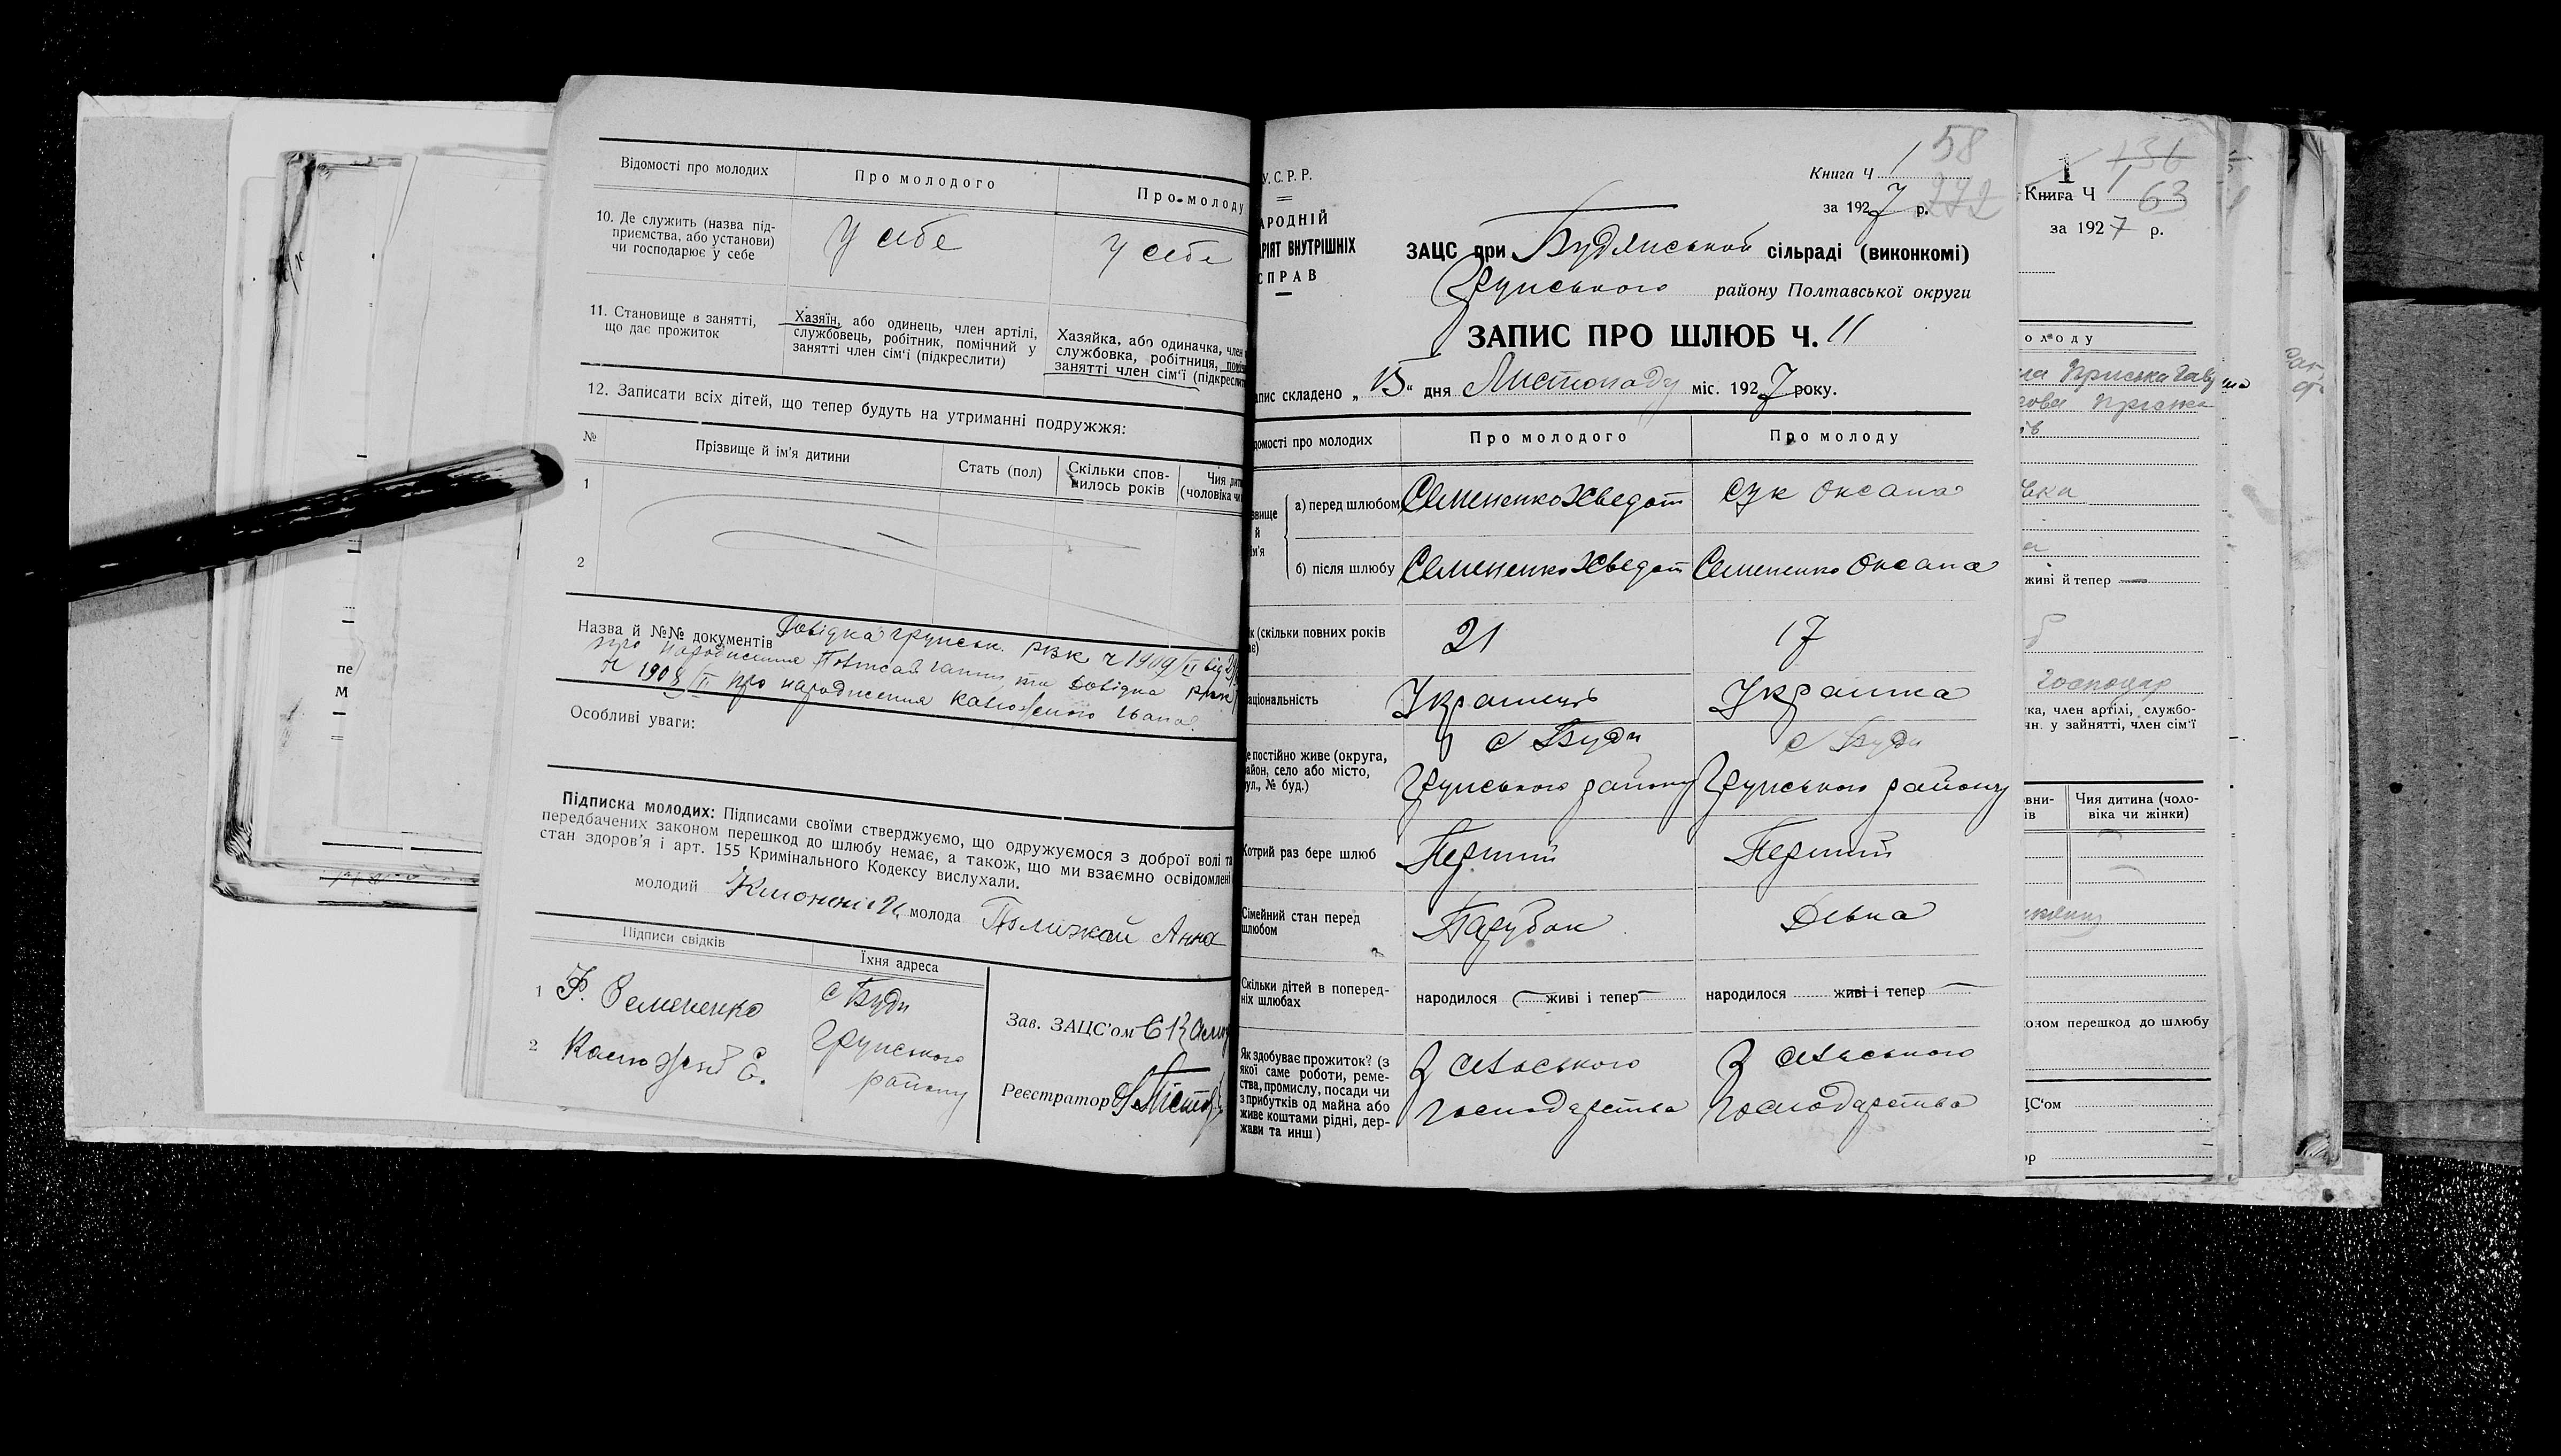 Відомості про молодих
Про молодого
Про молоду
10. Де служить (назва під-
приємства, або установи)
чи господарює у себе
У себе
У себе
11. Становище в занятті,
що дає прожиток
Хазяїн, або одинець, член артілі,
службовець, робітник, помічний у
занятті член сім'ї (підкреслити)
Хазяйка, або одиначка, член
службовка, робітниця,
занятті член сім'ї (підкреслит
12. Записати всіх дітей, що тепер будуть на утриманні подружжя:
№
Прізвище й ім'я дитини
Стать (пол)
Скільки спов-
нилось років
Чия дит
(чоловіка чи
1
2
Назва й №№ документів Довідка Грунськ. РВК ч 1909/II від
про народження Ганни та Довідка РВК
ч 1908/II про народження Івана
Особливі уваги:
Підписка молодих: Підписами своїми стверджуємо, що одружуємося з доброї волі та
передбачених законом перешкод до шлюбу немає, а також, що ми взаємно освідомлені
стан здоров'я і арт. 155 Кримінального Кодексу вислухали.
молодий молода Анна
Підписи свідків
Їхня адреса
1 Ф. Семененко
с Буди
2
Грунського
району
Зав. ЗАЦС'ом
Реєстратор
У.С.Р.Р.
АРОДНІЙ
РІЯТ ВНУТРІШНІХ
СПРАВ
Книга Ч 1
58
за 1927 р.
272
ЗАЦС при Будянській сільраді (виконкомі)
Грунського району Полтавської округи
ЗАПИС ПРО ШЛЮБ Ч. 11
апис складено „15“ дня Листопаду міс. 1927 року.
домості про молодих
Про молодого
Про молоду
звище
й
ім'я
а) перед шлюбом
Семененко Хведот
Сук Оксана
б) після шлюбу
Семененко Хведот
Семененко Оксана
к (скільки повних років
ає)
21
17
аціональність
Украінець
Украінка
е постійно живе (округа,
айон, село або місто,
ул., № буд.)
с Буди
Грунського району
с Буди
Грунського району
Котрий раз бере шлюб
Перший
Перший
Сімейний стан перед
шлюбом
Парубок
Дівка
Скільки дітей в поперед-
ніх шлюбах
народилося — живі і тепер —
народилося живі і тепер —
Як здобуває прожиток? (з
якої саме роботи, реме-
ства, промислу, посади чи
з прибутків од майна або
живе коштами рідні, дер-
жави та инш)
З сільського
господарства
З сільського
господарства
1
136
Книга Ч 1
63
за 1927 р.
олоду
живі й тепер —
господар
ка, член артілі, службо-
чн. у зайнятті, член сім'ї
овни-
ів
Чия дитина (чоло-
віка чи жінки)
оном перешкод до шлюбу
ЦС'ом
ор
пе
М